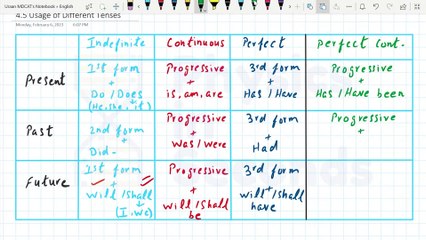 Uzair MDCAT's Notebook » English
4.5 Usage of Different Tenses
Monday, February 6, 2023 6:07 PM
Indefinite Continuous Perfect Perfect Cont.
Present
1st form
+
Do / Does
(He, she, it)
Progressive
+
is, am, are
3rd form
+
Has / Have
Progressive
+
Has / Have been
Past
2nd form
+
Did -
Progressive
+
Was / Were
3rd form
+
Had
Progressive
+
Future
1st form
+
Will / Shall
(I, we)
Progressive
+
will / shall
be
3rd form
+
will / shall
have